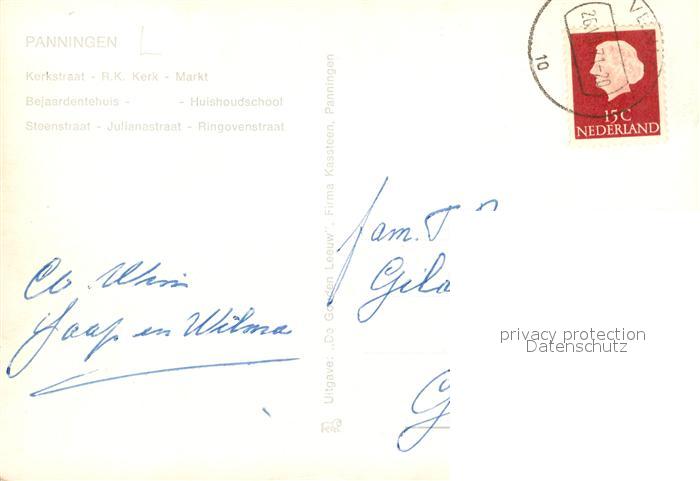 PANNINGEN
Kerkstraat - R.K. Kerk - Markt
Bejaardentehuis - - Huishoudschool
Steenstraat - Julianastraat - Ringovenstraat
Wim
Jaap en Wilma
Uitgave: „De Gouden Leeuw", Firma Kassteen, Panningen
fam. T
Gila
G
10
15C
NEDERLAND
privacy protection
Datenschutz